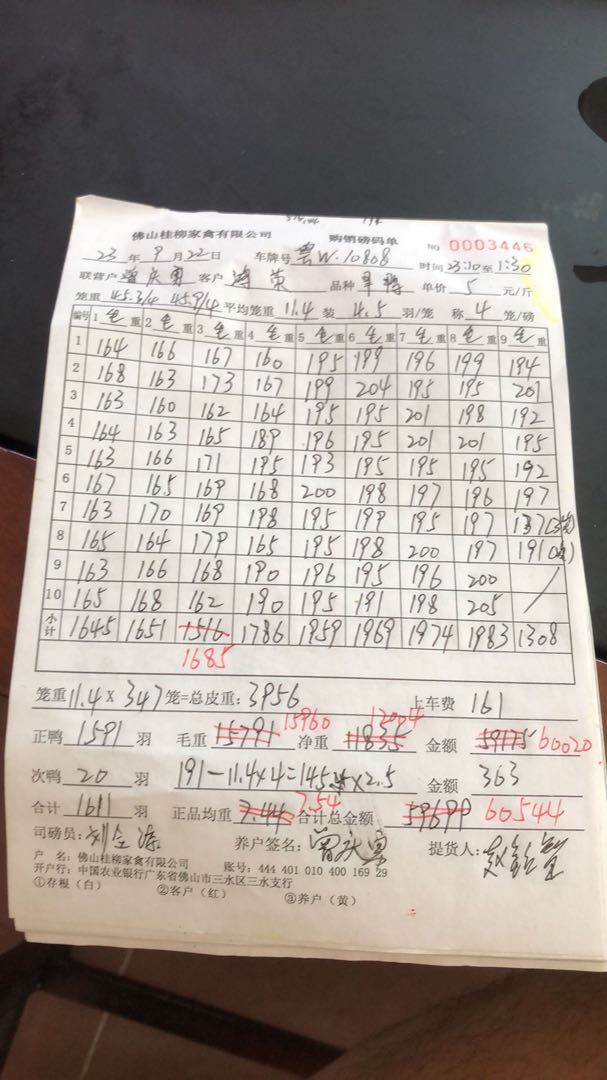 佛山桂柳家禽有限公司 购销磅码单 NO 0003446
23 年 9 月 22 日 车牌号 粤W·10808 时间 23:10 至 1:30
联营户 曾庆勇 客户 鸿 品种 单价 5 元/斤
笼重 45.3/4 45.9/4 平均笼重 11.4 装 4.5 羽/笼 称 4 笼/磅
编号 1 毛 重 2 毛 重 3 毛 重 4 毛 重 5 毛 重 6 毛 重 7 毛 重 8 毛 重 9 毛 重
1 164 166 167 160 195 199 196 199 194
2 168 163 173 167 199 204 195 195 201
3 163 160 162 164 195 195 201 198 192
4 164 163 165 189 196 195 201 201 195
5 163 166 171 195 193 195 195 195 192
6 167 165 169 168 200 198 197 196 197
7 163 170 169 198 195 199 195 197 137(3笼)
8 165 164 179 165 195 198 200 197 191
9 163 166 168 190 196 195 196 200
10 165 168 162 190 195 191 198 205
小计 1645 1651 1516 1786 1959 1969 1974 1983 1308
1685
笼重 11.4 X 347 笼=总皮重: 3956 上车费 161
正鸭 1591 羽 毛重 15791 15960 净重 11835 12004 金额 59175 60020
次鸭 20 羽 191-11.4×4=145.4×2.5 金额 363
合计 1611 羽 正品均重 7.44 7.54 合计总金额 59699 60544
司磅员: 养户签名: 曾庆勇 提货人:
户 名: 佛山桂柳家禽有限公司 账号: 444 401 010 400 169 29
开户行: 中国农业银行广东省佛山市三水区三水支行
①存根（白） ②客户（红） ③养户（黄）